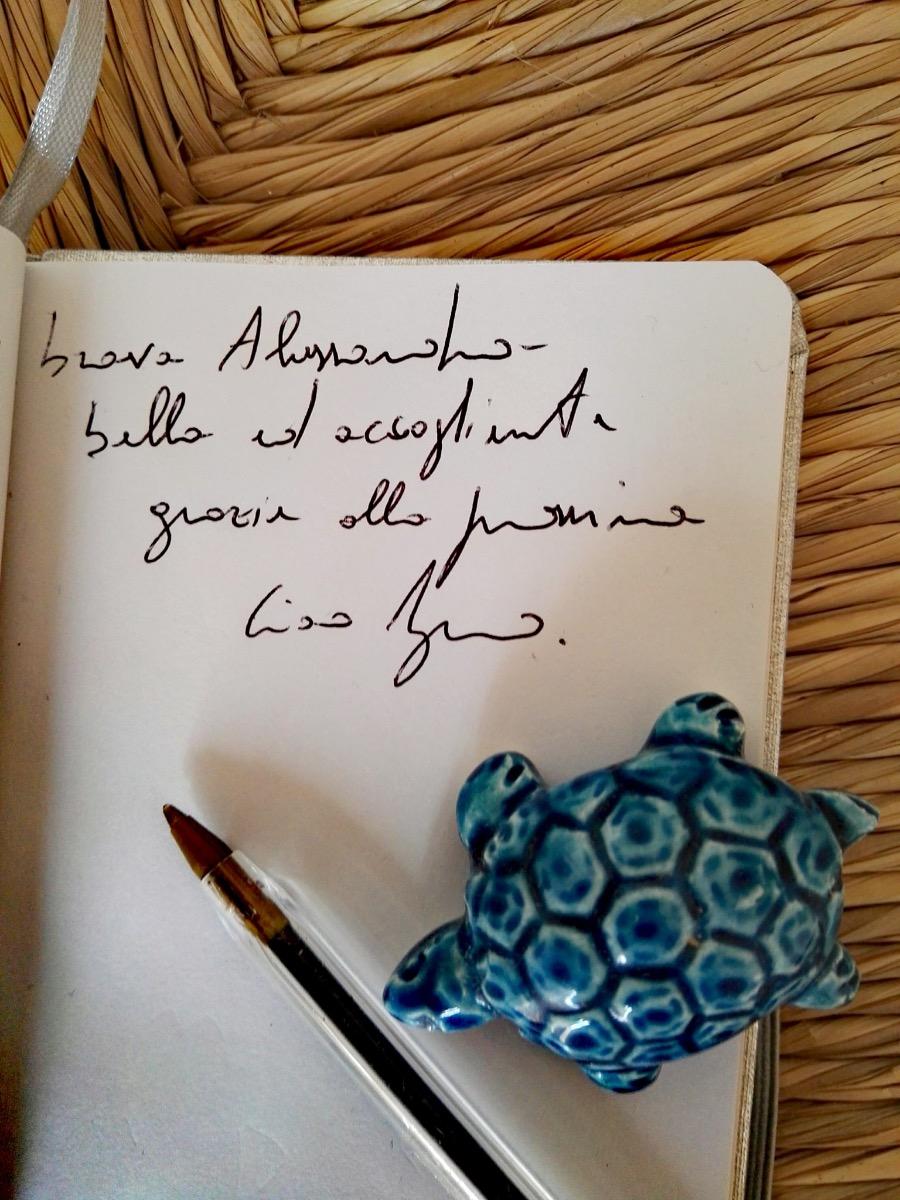 brava Alessandra-
bella ed accogliente
grazie alla prossima
Ciao